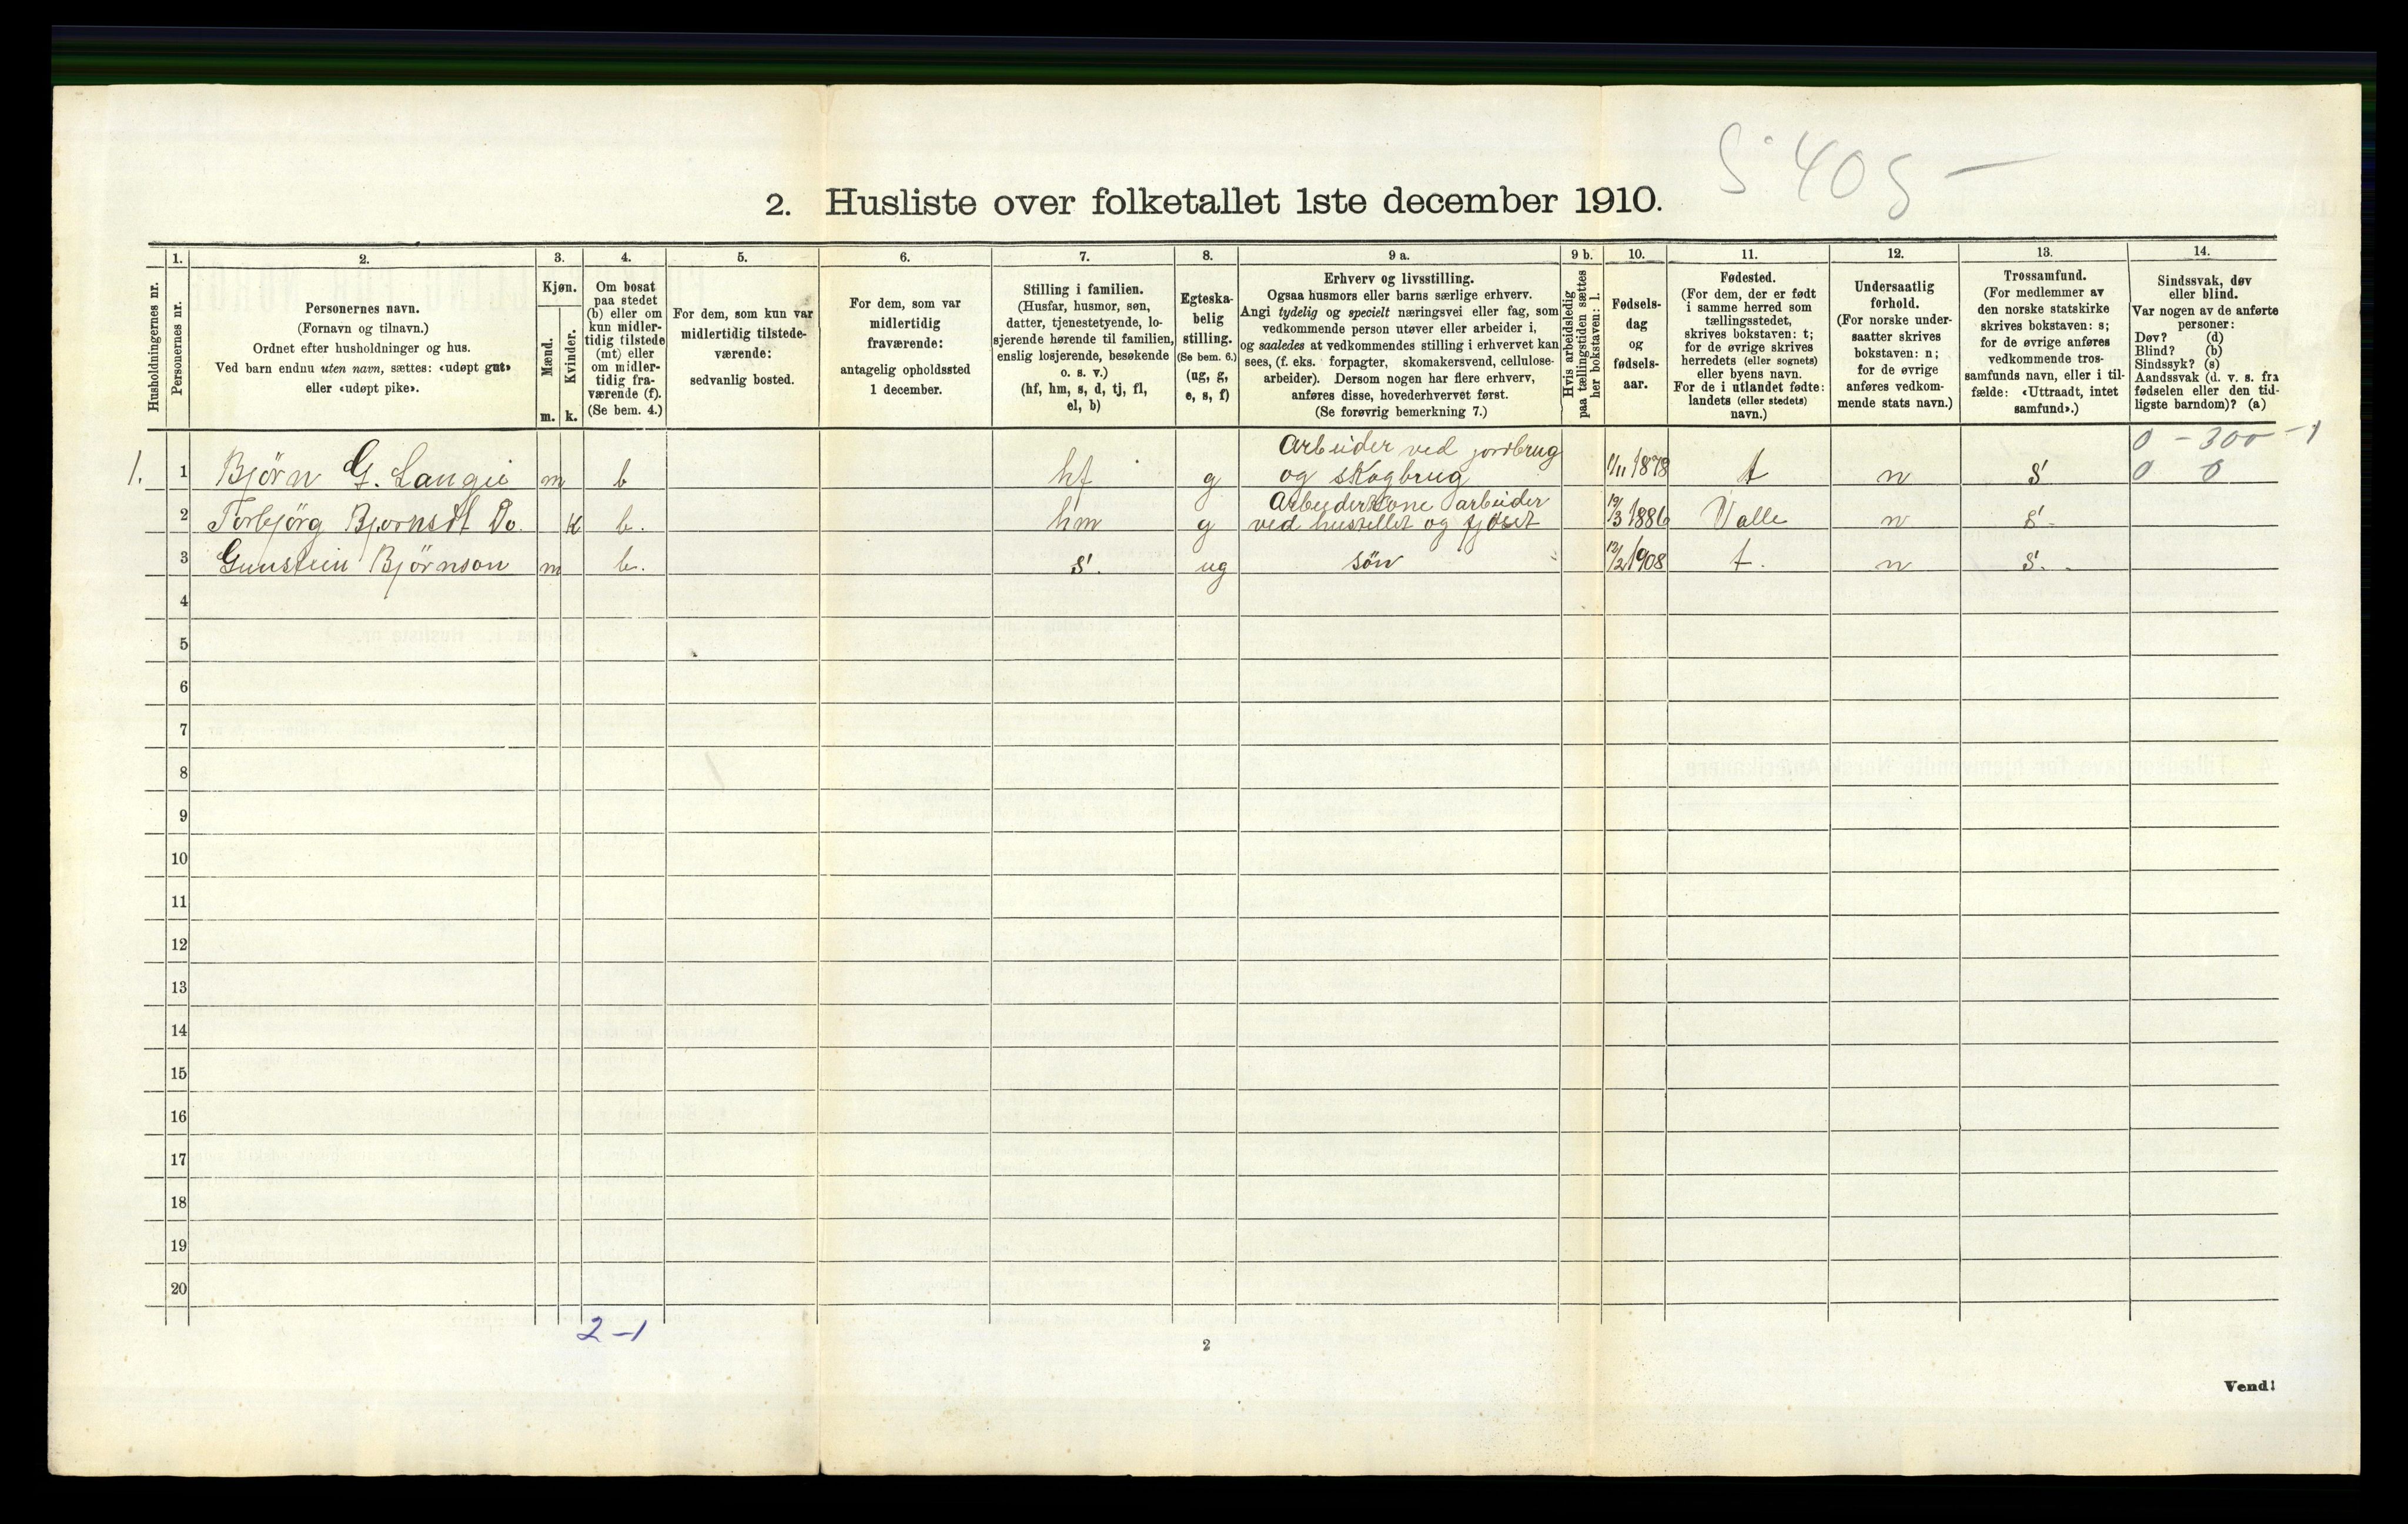 S 405 -
2. Husliste over folketallet 1ste december 1910.
Husholdningernes nr.
1.
Personernes nr.
2.
Personernes navn.
(Fornavn og tilnavn.)
Ordnet efter husholdninger og hus.
Ved barn endnu uten navn, sættes: «udøpt gut»
eller «udøpt pike».
3.
Kjøn.
Mænd.
m.
Kvinder.
k.
4.
Om bosat
paa stedet
(b) eller om
kun midler-
tidig tilstede
(mt) eller
om midler-
tidig fra-
værende (f).
(Se bem. 4.)
5.
For dem, som kun var
midlertidig tilstede-
værende:
sedvanlig bosted.
6.
For dem, som var
midlertidig
fraværende:
antagelig opholdssted
1 december.
7.
Stilling i familien.
(Husfar, husmor, søn,
datter, tjenestetyende, lo-
sjerende hørende til familien,
enslig losjerende, besøkende
o. s. v.)
(hf, hm, s, d, tj, fl,
el, b)
8.
Egteska-
belig
stilling.
(Se bem. 6.)
(ug, g,
e, s, f)
9 a.
Erhverv og livsstilling.
Ogsaa husmors eller barns særlige erhverv.
Angi tydelig og specielt næringsvei eller fag, som
vedkommende person utøver eller arbeider i,
og saaledes at vedkommendes stilling i erhvervet kan
sees, (f. eks. forpagter, skomakersvend, cellulose-
arbeider). Dersom nogen har flere erhverv,
anføres disse, hovederhvervet først.
(Se forøvrig bemerkning 7.)
9 b.
Hvis arbeidsledig
paa tællingstiden sættes
her bokstaven: l.
10.
Fødsels-
dag
og
fødsels-
aar.
11.
Fødested.
(For dem, der er født
i samme herred som
tællingsstedet,
skrives bokstaven: t;
for de øvrige skrives
herredets (eller sognets)
eller byens navn.
For de i utlandet fødte:
landets (eller stedets)
navn.)
12.
Undersaatlig
forhold.
(For norske under-
saatter skrives
bokstaven: n;
for de øvrige
anføres vedkom-
mende stats navn.)
13.
Trossamfund.
(For medlemmer av
den norske statskirke
skrives bokstaven: s;
for de øvrige anføres
vedkommende tros-
samfunds navn, eller i til-
fælde: «Uttraadt, intet
samfund».)
14.
Sindssvak, døv
eller blind.
Var nogen av de anførte
personer:
Døv? (d)
Blind? (b)
Sindssyk? (s)
Aandssvak (d. v. s. fra
fødselen eller den tid-
ligste barndom)? (a)
Arbeider ved jordbrug 0 - 300 - 1
1. 1 Bjørn G. Langei m b hf g og skogbrug 1/11 1878 t n S 0 0
Arbeiderkone arbeider
2 Torbjørg Bjornsdt Do. K b. hm g ved hustellet og fjøset 19/3 1886 Valle n s
3 Gunstein Bjørnson m b. s. ug søn 12/2 1908 t. n s.
4
5
6
7
8
9
10
11
12
13
14
15
16
17
18
19
20
2-1
2
Vend!